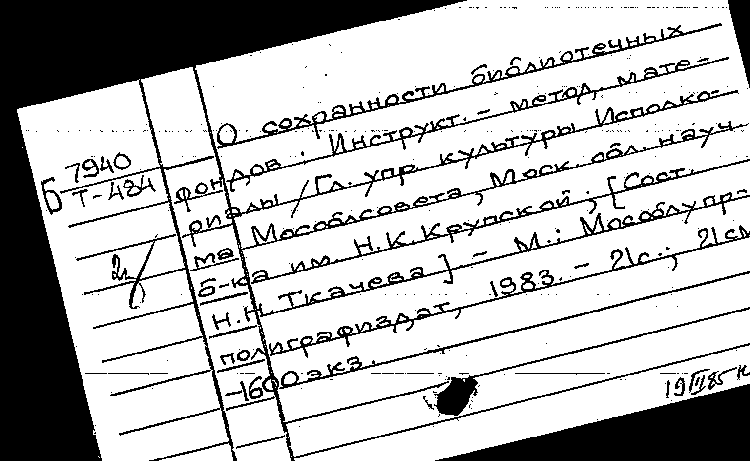 О сохранности библиотечных
фондов: Инструкт.- метод. мате-
риалы / Гл. упр. культуры Исполко-
ма Мособлсовета, Моск. обл. науч.
б-ка им. Н.К. Крупской; [Сост.
Н.Н. Ткачева] - М.: Мособлупр-
полиграфиздат, 1983. - 21с.; 21см
-1600 экз.
Б 7940
Т-484
19 III 85